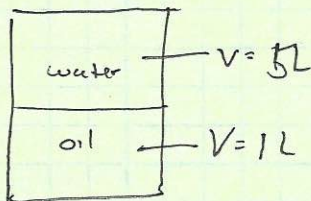 water V = 5L
oil V = 1L